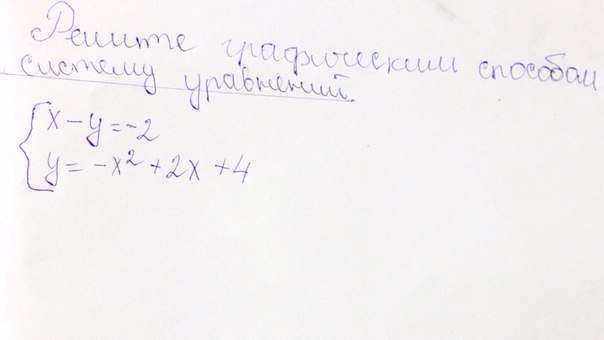 Решите графическим способом
систему уравнений.
x - y = -2
y = -x² + 2x + 4